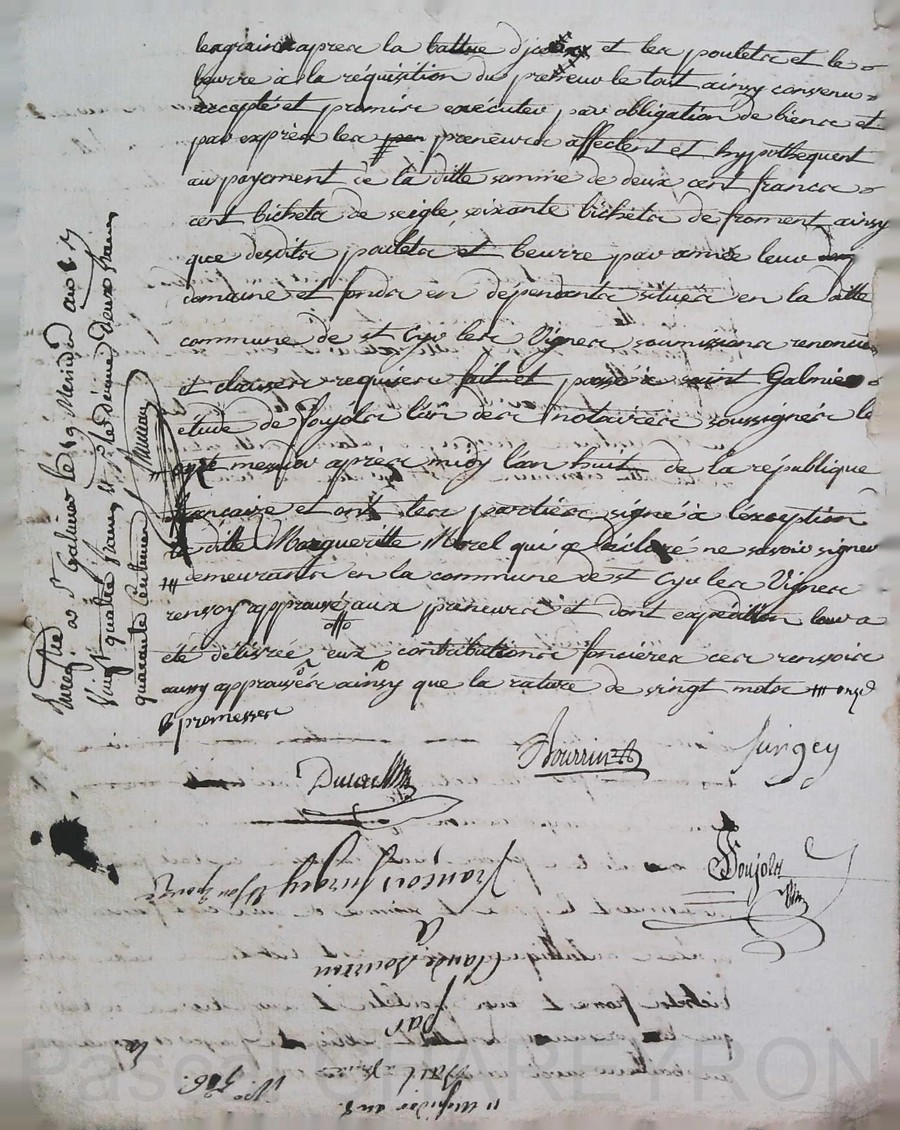 les grains apres la battue d'jceux et les poulets et le
beurre à la réquisition du preneur le tout ainsy convenu
accepté et promis exécuter par obligation de biens et
par exprès les pen preneurs affectent et hypothequent
au payement de la ditte somme de deux cent francs
cent bichets de seigle, soixante bichets de froment ainsy
que desdits poulets et beurre par année leur
domaine et fonds en dependants situés en la ditte
commune de st Cyr les Vignes soumissions renonci
et clauses requises fait et passé a saint Galmier
étude de Poujols l'un des notaires soussignés le
onze messidor apres midy l'an huit de la république
française et ont les parties signé à l'exception
la ditte Margueritte Morel qui a déclaré ne savoir signer
demeurants en la commune de st Cyr les Vignes
renvoy approuvé aux preneurs et dont expedition leur a
été délivrée eux contributions foncieres ces renvois
aussy approuvés ainsy que la rature de vingt mots onze
promesses
Bourrin
Jurgey
Duval
Poujols
Enregistré a St Galmier le 19 Messidor an 8
Vingt quatre francs et le décime deux francs
quarante centimes
11 Messidor an 8.
No 516.
Bail a ferme
par
Claude Bourrin
a
francois Jurgey